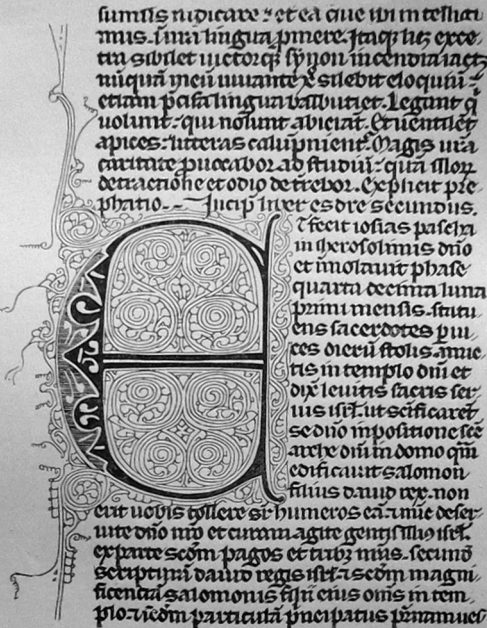 iudicare · et ea que
mus. lingua Itaqȝ licȝ exce
tra sibilet uictorqȝ synon incendia iactȝ
nūquā meū iuuante silebit eloquiū ·
etiam lingua balbutiet. Legant q̄
uolunt · qui nolunt abiciāt. Euentilēt
apices · litteras calūpnient᷑. Magis urā
caritate ꝓuocabor ad studiū · quā illoꝝ
detractione et odio deterrebor. Explicit pre
phatio. Incip̄ liber esdre secundus.
Et fecit iosias pascha
in iherosolimis dn̄o
et īmolauit phase
quarta decima luna
primi mensis. statu
ens sacerdotes ꝑ ui
ces dierū stolis amic
tis in templo dn̄i et
dix̄ leuitis sacris ser
uis isrl̄. ut sc̄ificarēt
se dn̄o in positione sc̄e
arche dn̄i in domo quā
edificauit salomon
filius dauid rex. non
erit uobis tollere sr̄ humeros eā. nūc deser
uite dn̄o nr̄o et curam agite gentis illiꝰ isrl̄.
ex parte scd̄m pagos et tribꝰ secund̄
scripturā dauid regis isrl̄. ⁊ scd̄m magni
ficentiā salomonis filii eius om̄s in tem
plo ⁊ scd̄m particulā p̄ncipatus